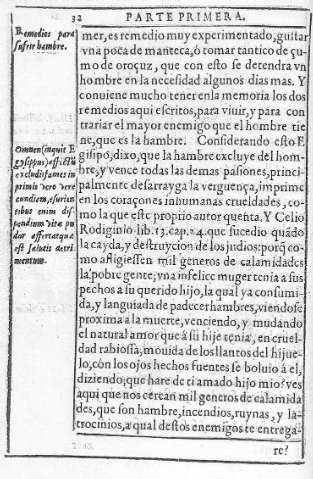 32 PARTE PRIMERA.
Remedios para
sufrir hambre.
mer, es remedio muy experimentado, guitar
vna poca de manteca, ó tomar tantico de çu-
mo de oroçuz, que con esto se detendra vn
hombre en la necesidad algunos dias mas. Y
conuiene mucho tener en la memoria los dos
remedios aqui escritos, para viuir, y para con
trariar el mayor enemigo que el hombre tie
ne, que es la hambre. Considerando esto E-
gisipo, dixo, que la hambre excluye del hom-
bre, y vence todas las demas pasiones, princi-
palmente desarrayga la verguença, imprime
en los coraçones inhumanas crueldades, co-
mo la que este proprio autor quenta. Y Celio
Rodiginio lib. 13. cap. 24. que sucedio quãdo
la cayda, y destruycion de los judios: porq̃ co-
mo afligiessen mil generos de calamidades
la pobre gente, vna infelice muger tenia a sus
pechos a su querido hijo, la qual ya consumi-
da, y languiada de padecer hambres, viendose
proxima a la muerte, venciendo, y mudando
el natural amor que â su hijo tenia, en cruel-
dad rabiosa, mouida de los llantos del hijue-
lo, cõn los ojos hechos fuentes se boluio â el,
diziendo: que hare de ti amado hijo mio? ves
aqui que nos cercan mil generos de calamida
des, que son hambre, incendios, ruynas, y la-
trocinios, a qual destos enemigos te entrega-
re?
Omnem (inquit E
gysippus) affectũ
excludit fames in
primis vero vere
cundiam, esurien
tibus enim dis-
pendium vitæ pu
dor affertur quæ
est salutis detri-
mentum.